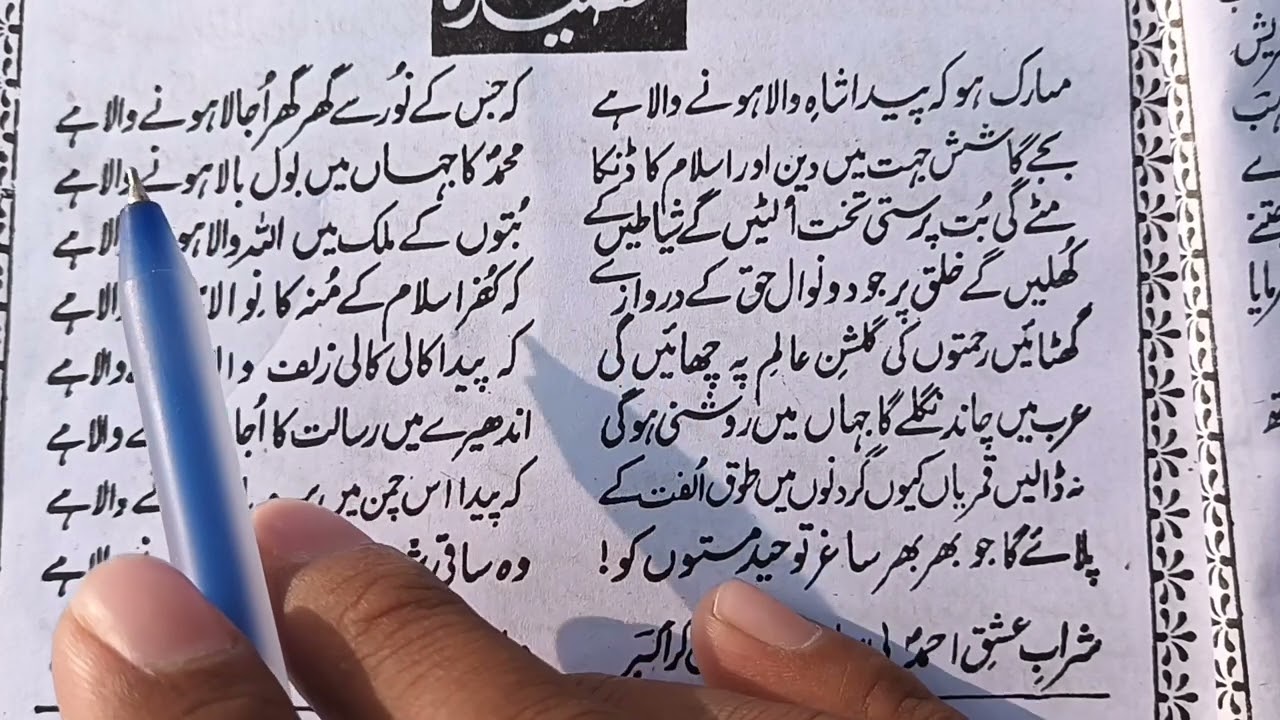 قصیدہ
مبارک ہو کہ پیدا شاہِ والا ہونے والا ہے کہ جس کے نُور سے گھر گھر اُجالا ہونے والا ہے
بجے گا شش جہت میں دین اور اسلام کا ڈنکا محمدؐ کا جہاں میں بول بالا ہونے والا ہے
مٹے گی بُت پرستی تخت اُلٹیں گے شیاطیں کے بُتوں کے ملک میں اللہ والا والا ہے
کُھلیں گے خلق پر جود و نوال حق کے دروازے کہ کُفر اسلام کے مُنہ کا نوالا والا ہے
گھٹائیں رحمتوں کی گلشنِ عالم پہ چھائیں گی کہ پیدا کالی کالی زلف والا ہے
عرب میں چاند نکلے گا جہاں میں روشنی ہوگی اندھیرے میں رسالت کا والا ہے
نہ ڈالیں قمریاں کیوں گردنوں میں طوق اُلفت کے کہ پیدا اس چمن میں والا ہے
پلائے گا جو بھر بھر ساغر توحید مستوں کو! وہ ساقی والا ہے
شرابِ عشقِ احمدؐ اکبر